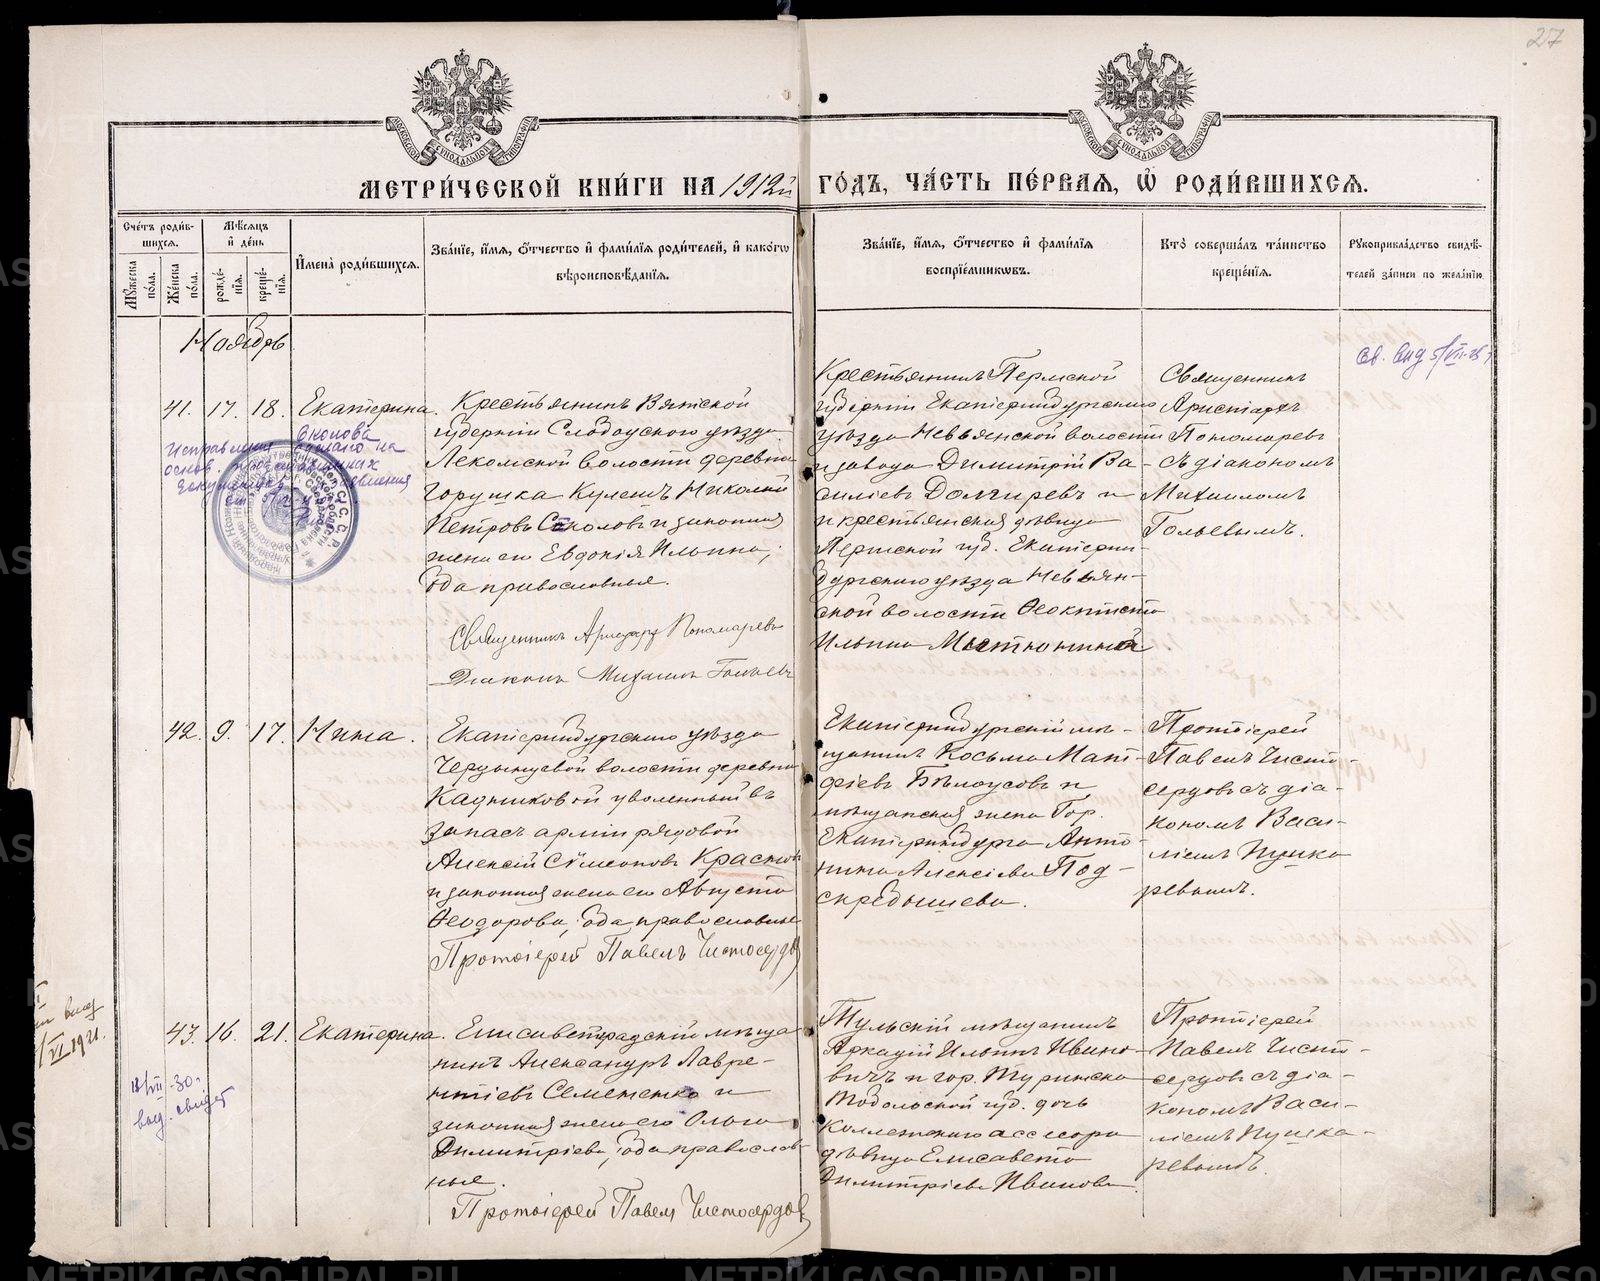 27
МОСКОВСКОЙ СѴНОДАЛЬНОЙ ТИПОГРАФІИ
МОСКОВСКОЙ СѴНОДАЛЬНОЙ ТИПОГРАФІИ
МЕТРИ́ЧЕСКОЙ КНИ́ГИ НА 1912й ГО́ДЪ, ЧА́СТЬ ПЕ́РВАЯ, Ѡ҆ РОДИ́ВШИХСЯ.
Сче́тъ роди́вшихся.
Му́жеска по́ла.
Же́нска по́ла.
Мѣ́сяцъ и҆ де́нь
рожде́нїя.
креще́нїя.
И҆мена̀ роди́вшихся.
Зва́нїе, и҆́мя, ѻ҆́тчество и҆ фами́лїя роди́телей, и҆ какого вѣроисповѣ́данїя.
Зва́нїе, и҆́мя, ѻ҆́тчество и҆ фами́лїя воспрїе́мниковъ.
Кто̀ соверша́лъ та́инство креще́нїя.
Рукоприкла́дство свидѣ́телей за́писи по жела́нїю.
Ноябрь
41. 17. 18. Екатерина.
Соколова
Исправление сделано на
основ.
Крестьянинъ Вятской
губерніи Слободского уѣзда
Лекомской волости деревни
Горушка Кулемъ Николай
Петровъ Соколовъ и законная
жена его Евдокія Ильина,
оба православные.
Священникъ Аристархъ Пономаревъ
Діаконъ Михаилъ Гольевъ
Крестьянинъ Пермской
губерніи Екатеринбургскаго
уѣзда Невьянской волости
и завода Димитрій Ва-
силіевъ Долгиревъ и
и крестьянская дѣвица
Пермской губ. Екатерин-
бургскаго уѣзда Невьян-
ской волости Ѳеоктиста
Ильина
Священникъ
Аристархъ
Пономаревъ
съ діакономъ
Михаиломъ
Гольевымъ.
св. выд 5/VII-25
42. 9. 17. Нина.
Екатеринбургскаго уѣзда
волости деревни
Кадниковой уволенный въ
запасъ арміи рядовой
Алексій Сѵмеоновъ
и законная жена его Августа
Ѳеодорова, оба православные
Протоіерей Павелъ Чистосердовъ
Екатеринбургскій мѣ-
щанинъ Косьма Мат-
фіевъ Бѣлоусовъ и
мѣщанская жена гор.
Екатеринбурга Анто-
нина Алексіева Под-
скребышева.
Протоіерей
Павелъ Чисто-
сердовъ съ діа-
кономъ Васи-
ліемъ Пушка
ревымъ.
43. 16. 21. Екатерина.
Елисаветградскій мѣща
нинъ Александръ Лавре-
нтіевъ Семененко и
законная жена его Ольга
Димитріева, оба православ-
ные.
Протоіерей Павелъ Чистосердовъ
Тульскій мѣщанинъ
Аркадій Ильинъ Ивано-
вичъ и гор. Туринска
Тобольской губ. дочь
коллежскаго ассесора
дѣвица Елисавета
Димитріева Иванова.
Протоіерей
Павелъ Чисто-
сердовъ съ діа-
кономъ Васи-
ліемъ Пушка-
ревымъ.
VI 1921.
18/VII-30.
выд. свидет
METRIKI.GASO-URAL.RU